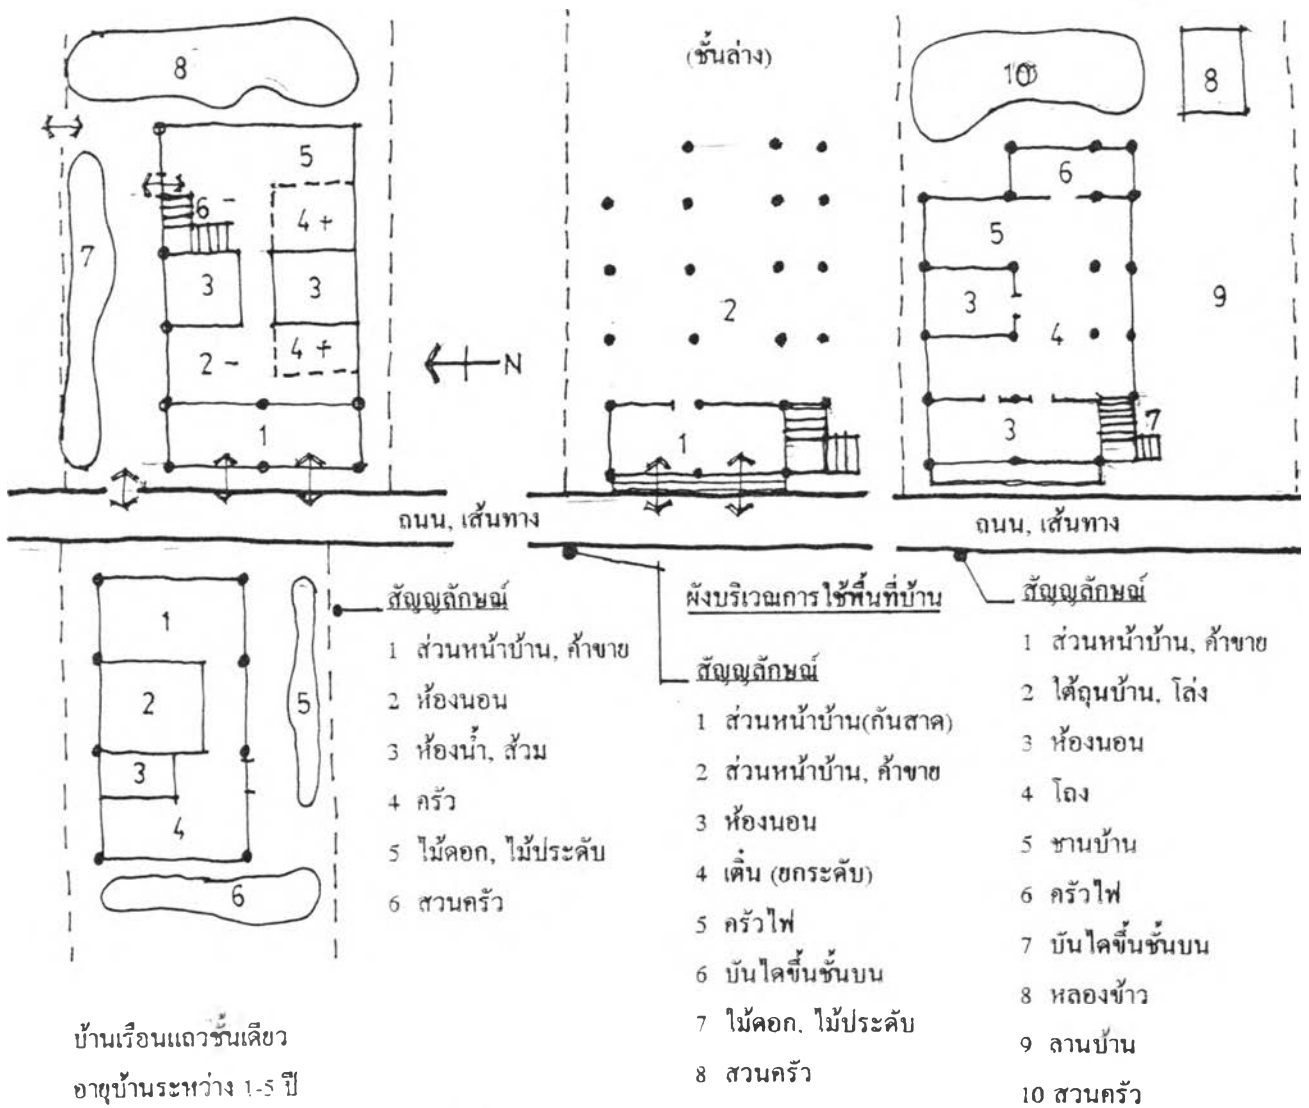 8
5
6 -
4 +
7
3
3
2 -
4 +
1
N
(ชั้นล่าง)
2
1
10
8
6
5
3
9
4
3
7
ถนน, เส้นทาง
ถนน, เส้นทาง
1
2
3
4
5
6
สัญญลักษณ์
1 ส่วนหน้าบ้าน, ค้าขาย
2 ห้องนอน
3 ห้องน้ำ, ส้วม
4 ครัว
5 ไม้ดอก, ไม้ประดับ
6 สวนครัว
บ้านเรือนแถวชั้นเดียว
อายุบ้านระหว่าง 1-5 ปี
ผังบริเวณการใช้พื้นที่บ้าน
สัญญลักษณ์
1 ส่วนหน้าบ้าน(กันสาด)
2 ส่วนหน้าบ้าน, ค้าขาย
3 ห้องนอน
4 เติ๋น (ยกระดับ)
5 ครัวไฟ
6 บันไดขึ้นชั้นบน
7 ไม้ดอก, ไม้ประดับ
8 สวนครัว
สัญญลักษณ์
1 ส่วนหน้าบ้าน, ค้าขาย
2 ใต้ถุนบ้าน, โล่ง
3 ห้องนอน
4 โถง
5 ชานบ้าน
6 ครัวไฟ
7 บันไดขึ้นชั้นบน
8 หลองข้าว
9 ลานบ้าน
10 สวนครัว